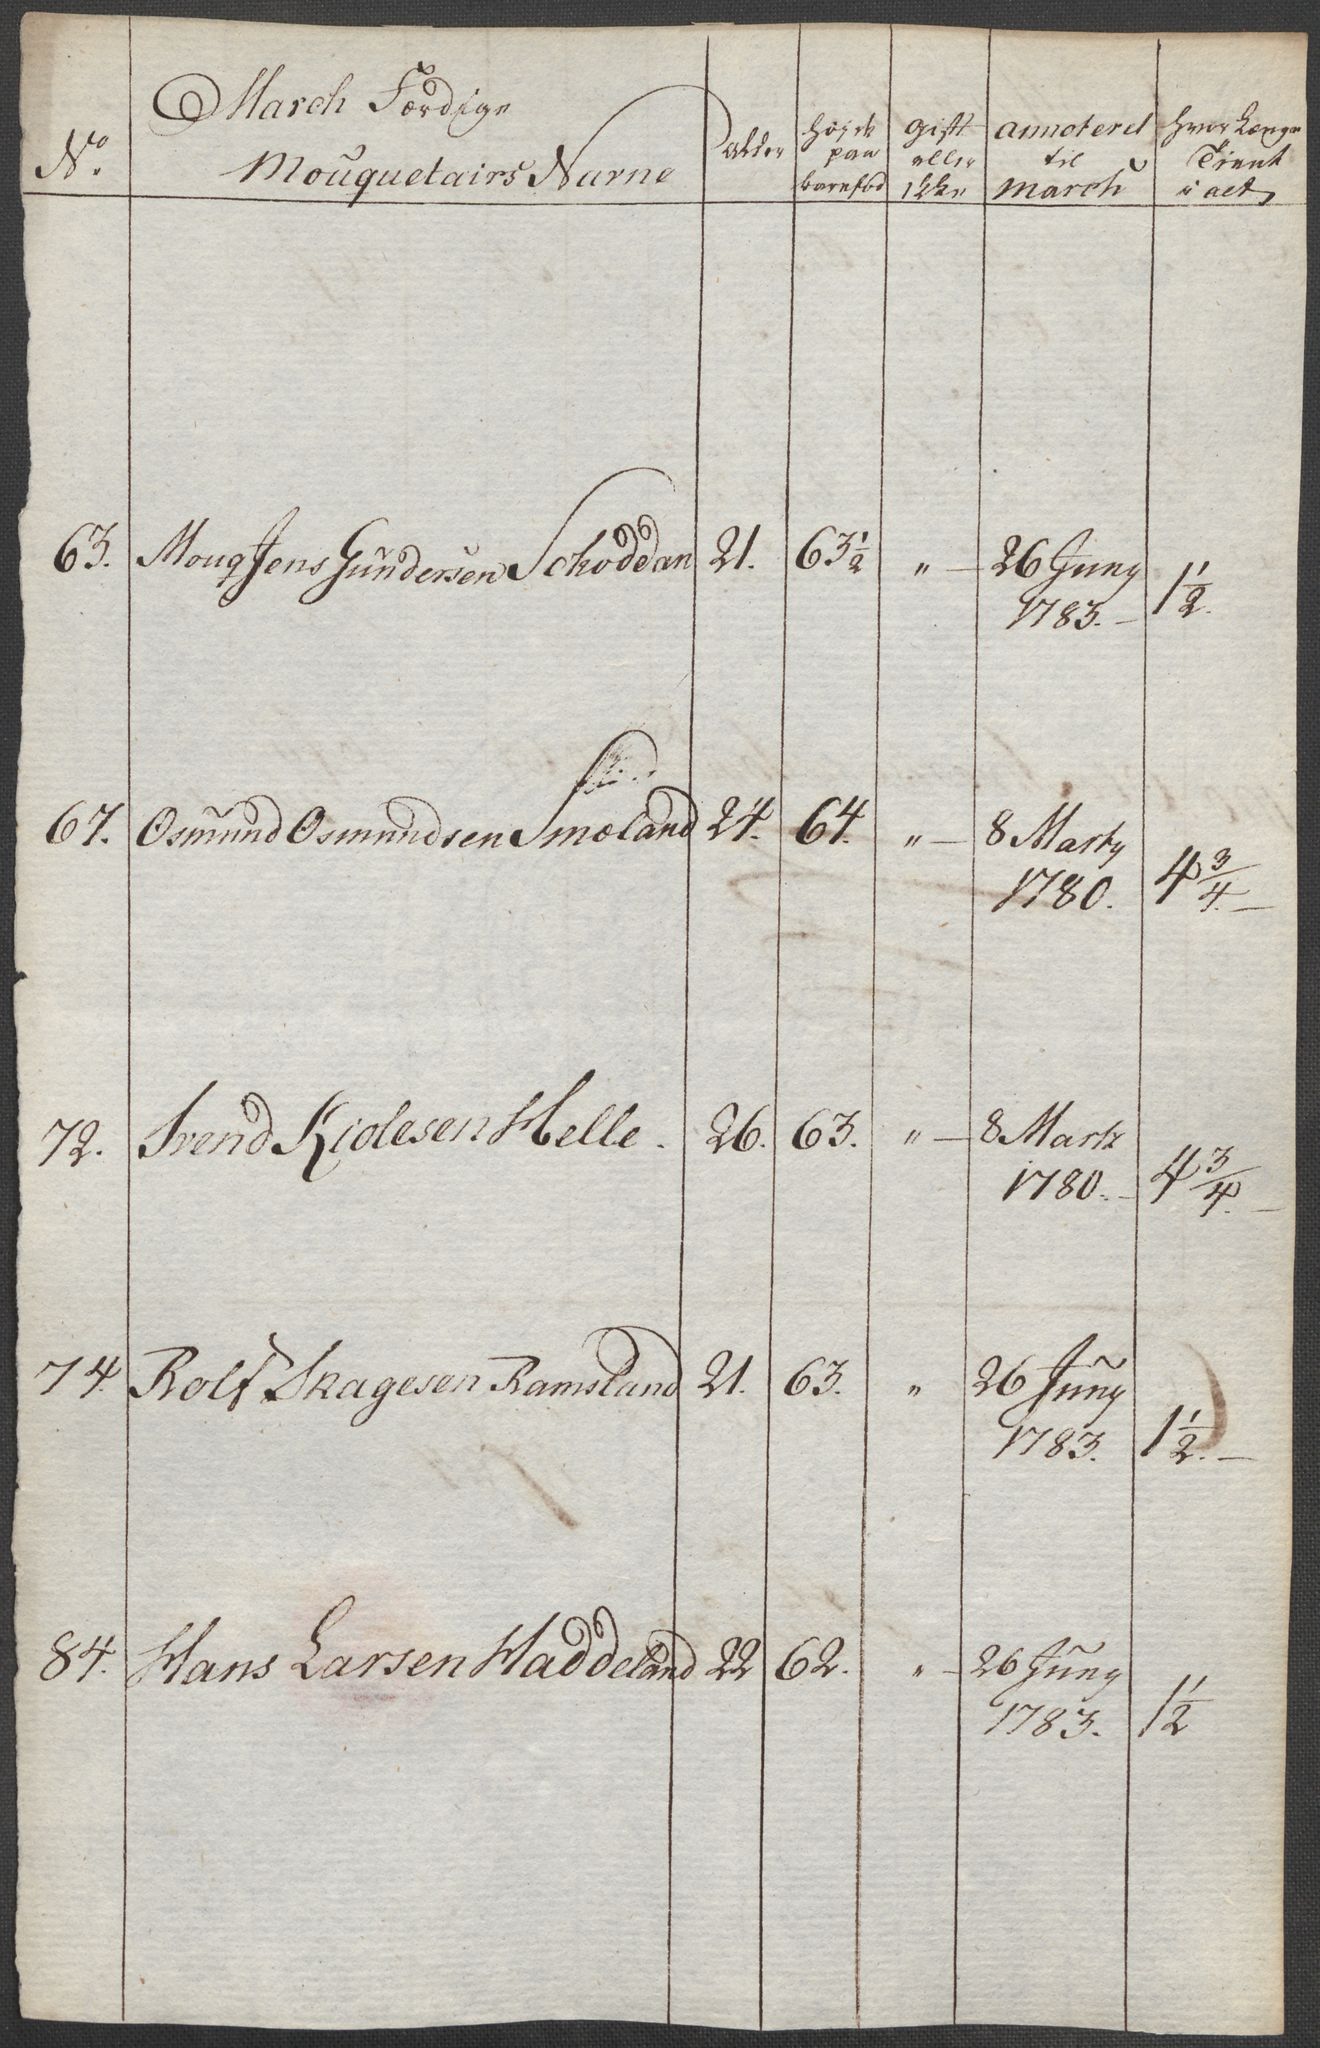 No. March Færdige Mouquetairs Navne | Alder | Høyde paa barefod | Gift eller ikke | annoteret til march | hvor Længe Tient i alt
63. Mouq Jens Gundersen Schoddan 21. 63½ „ — 26 Juny 1783. — 1½.
67. Osmund Osmundsen Smæland 24. 64. „ — 8 Marty 1780. 4¾. —
72. Svend Kiølesen Helle. 26. 63. „ — 8 Marti 1780. — 4¾. —
74. Rolf Skagesen Ramsland 21. 63. „ 26 Juny 1783. 1½. —
84. Hans Larsen Haddeland 22 62. „ — 26 Juny 1783. 1½